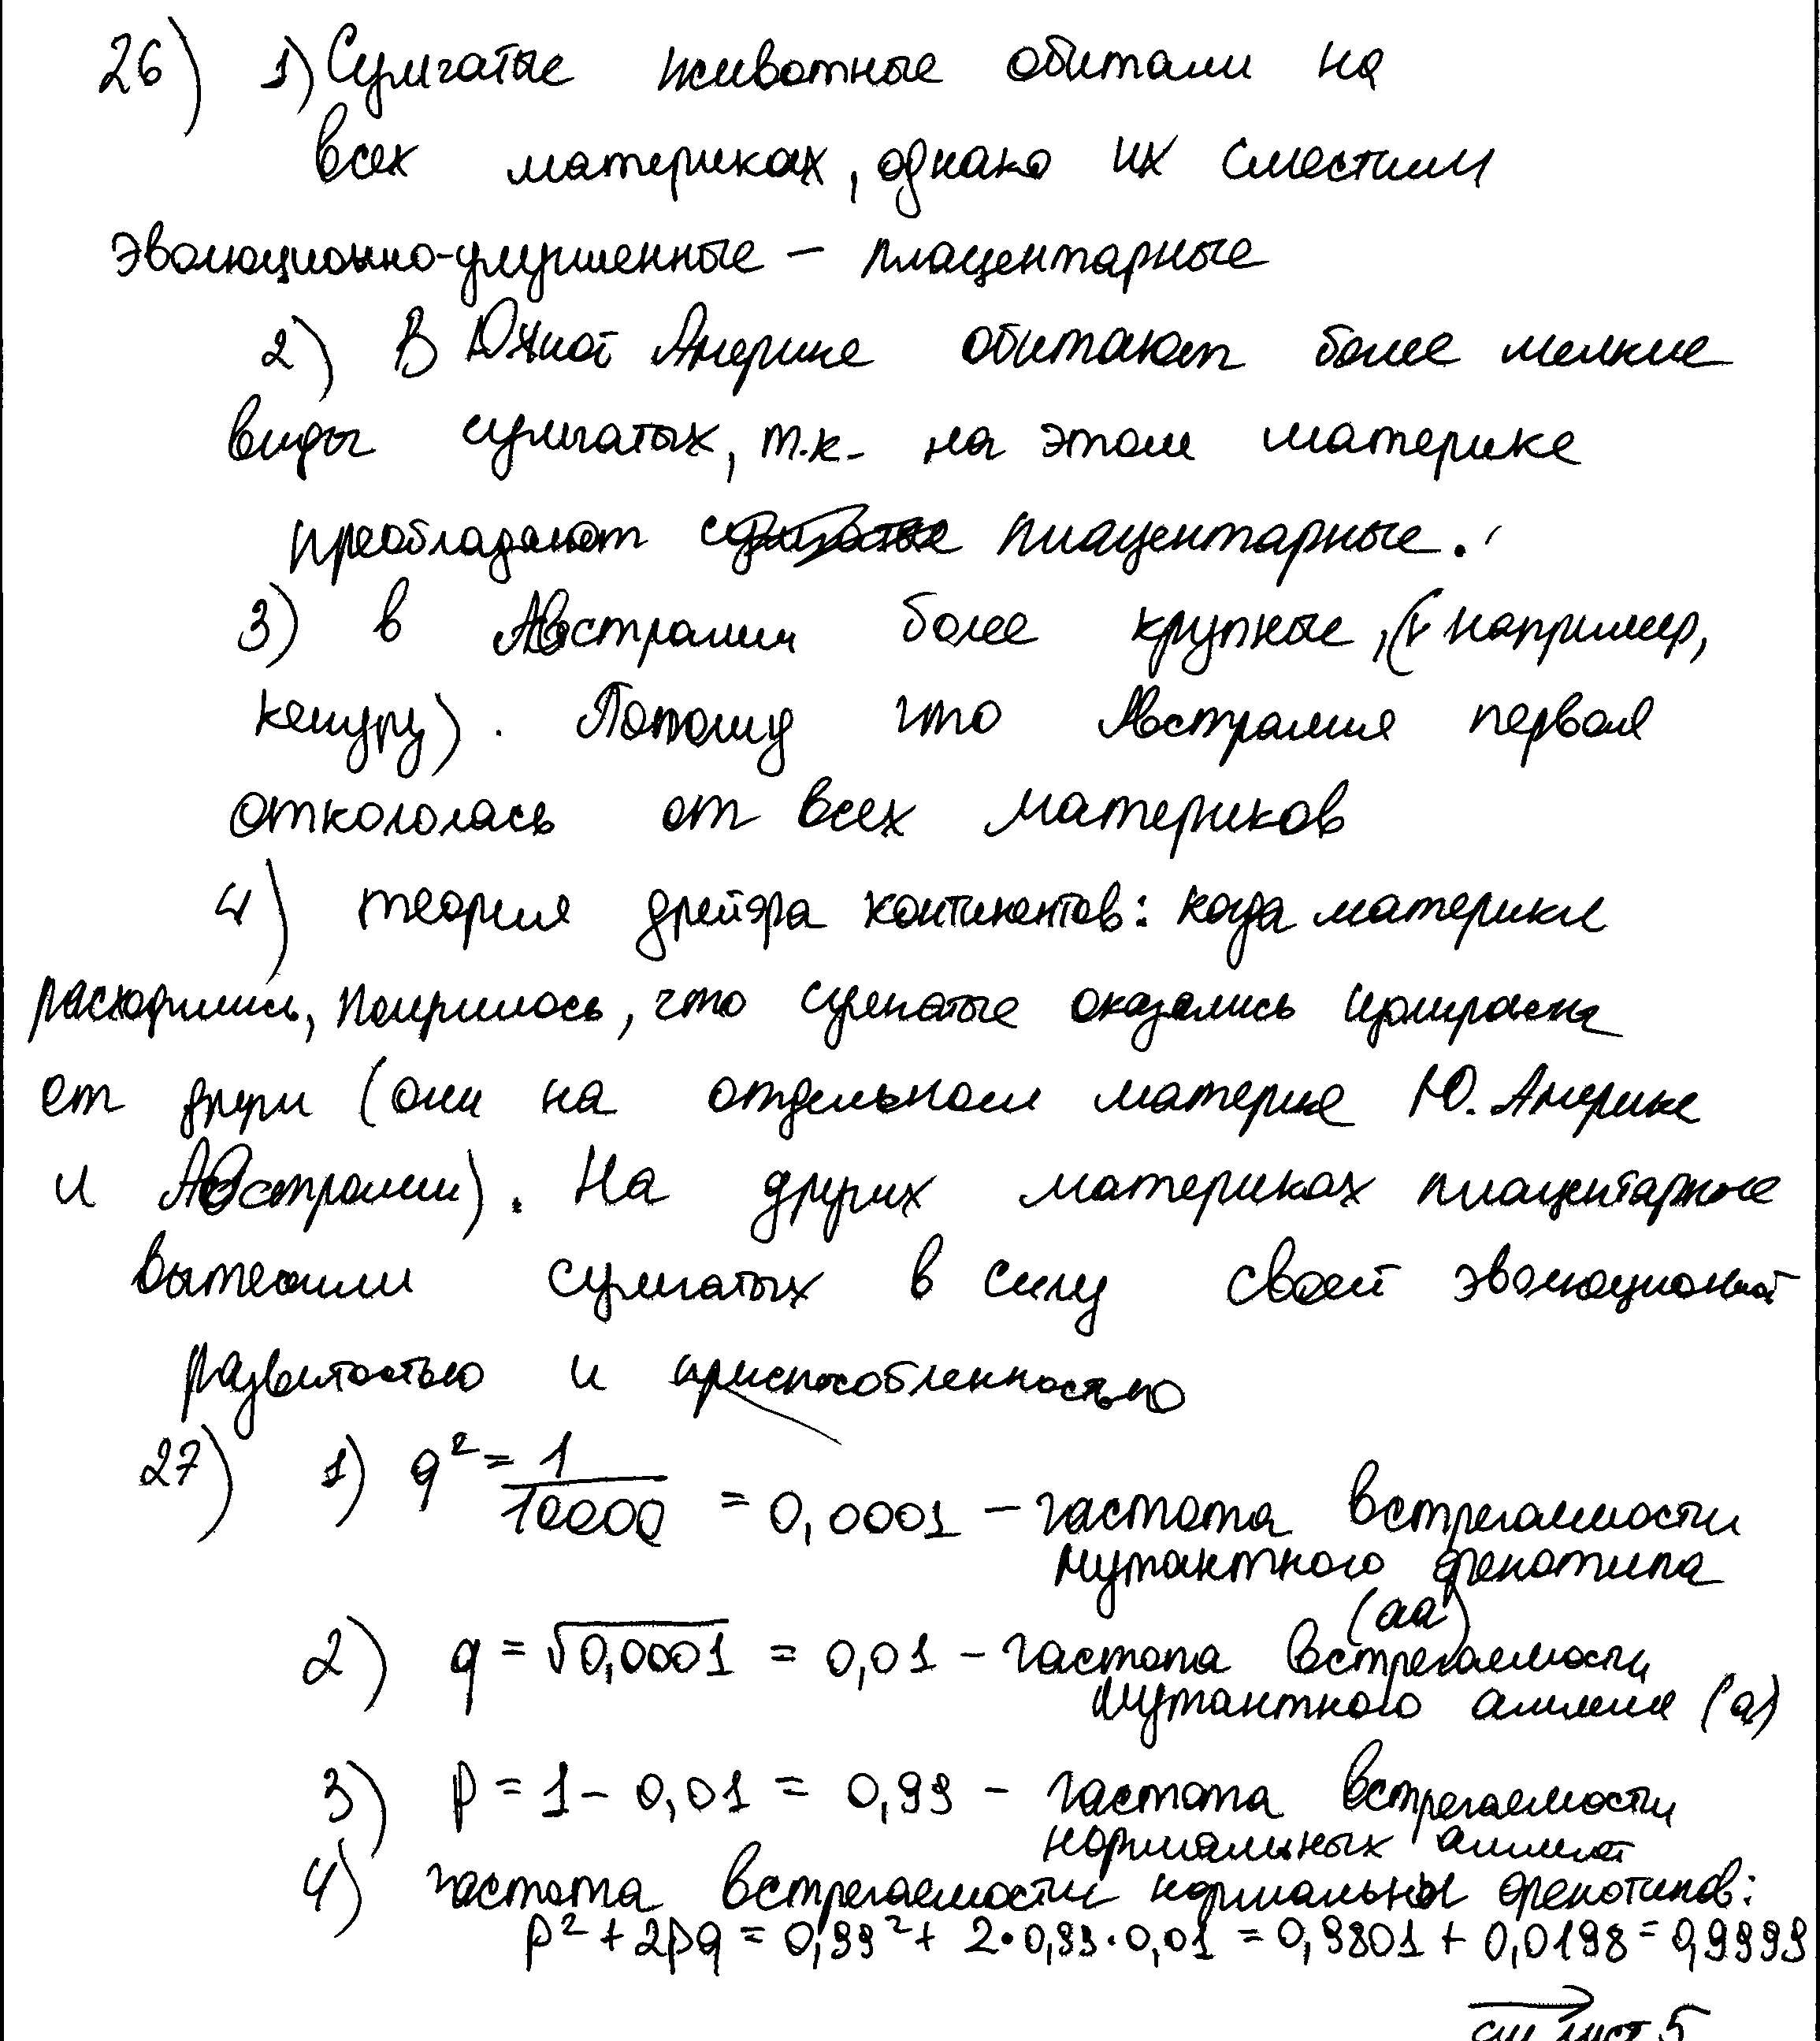 26) 1) Сумчатые животные обитали на
всех материках, однако их сместили
эволюционно-улучшенные – плацентарные
2) В Южной Америке обитают более мелкие
виды сумчатых, т.к. на этом материке
преобладают плацентарные.
3) в Австралии более крупные, (например,
кенгуру). Потому что Австралия первая
откололась от всех материков
4) теория дрейфа континентов: когда материки
расходились, получилось, что сумчатые оказались
от (они на отдельном материке Ю. Америке
и Австралии). На других материках плацентарные
вытеснили сумчатых в силу своей эволюционной
развитостью и приспособленностью
27) 1) q² = 1/10000 = 0,0001 – частота встречаемости
мутантного фенотипа
(aa)
2) q = √0,0001 = 0,01 – частота встречаемости
мутантного аллеля (a)
3) p = 1 - 0,01 = 0,99 – частота встречаемости
нормальных аллелей
4) частота встречаемости нормальных фенотипов:
p² + 2pq = 0,99² + 2·0,99·0,01 = 0,9801 + 0,0198 = 0,9999
см лист 5